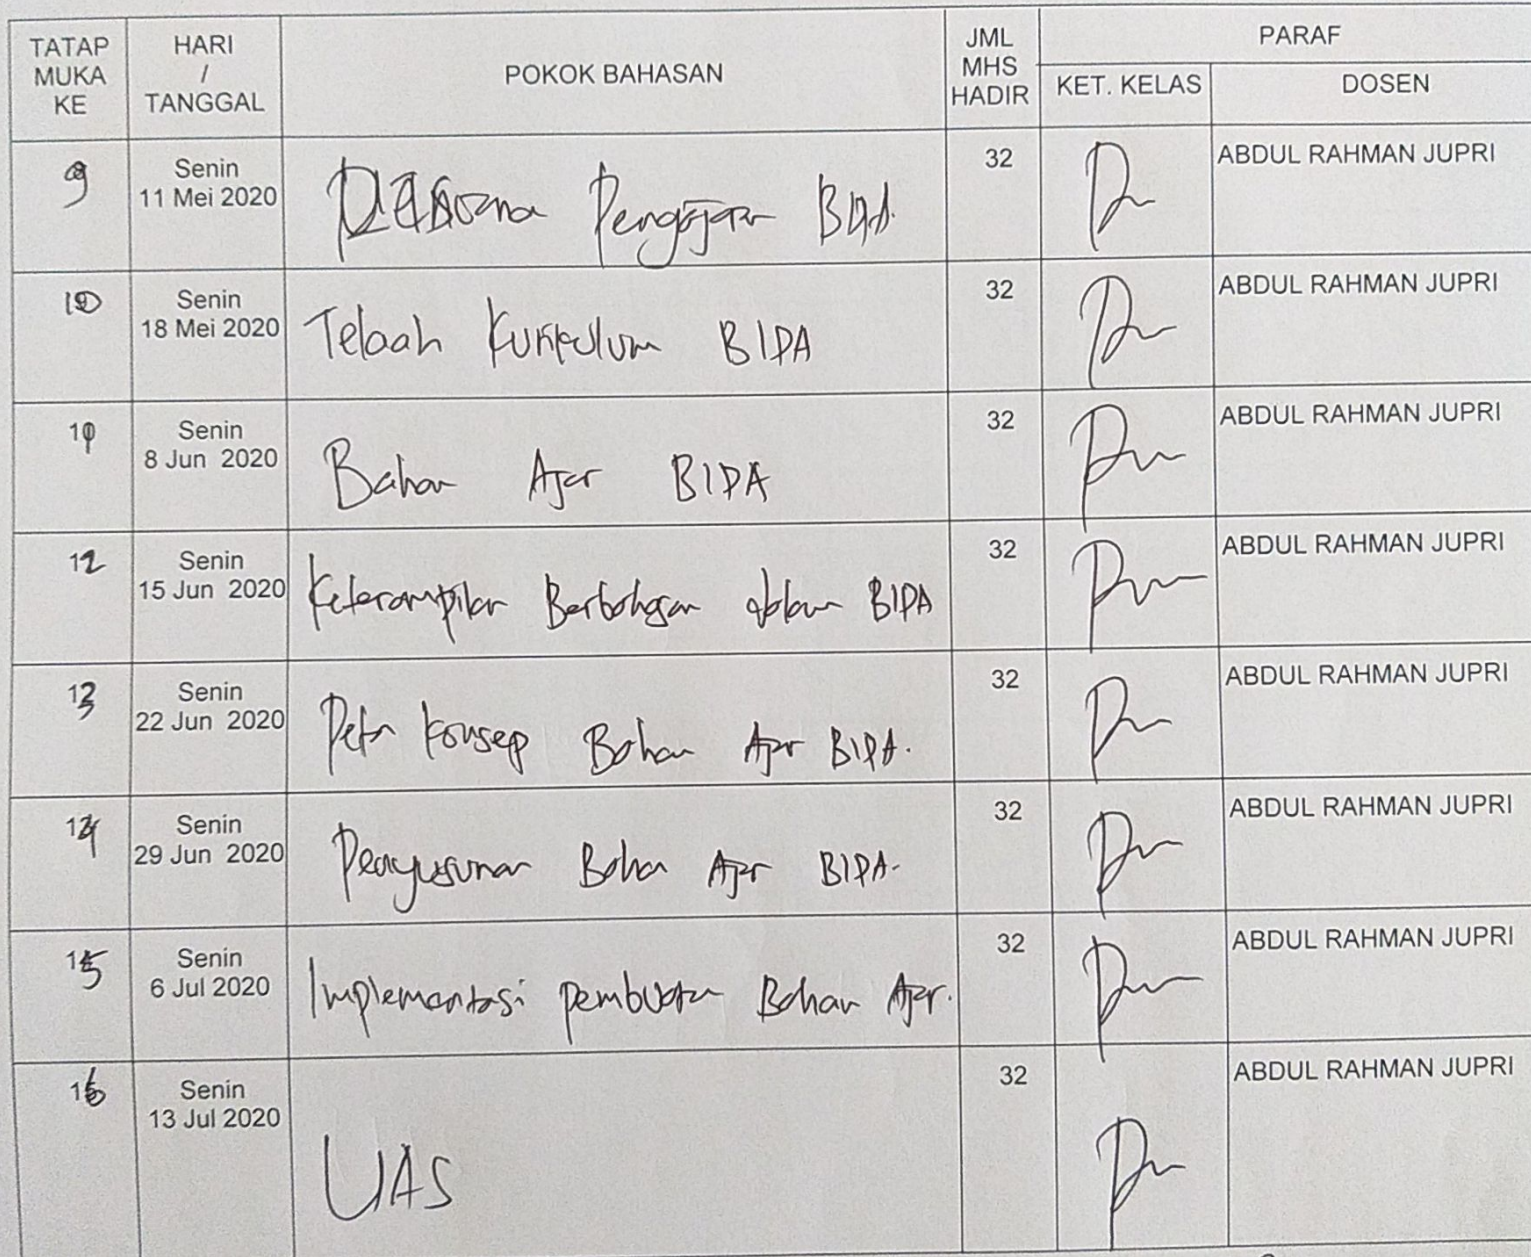 TATAP MUKA KE
HARI / TANGGAL
POKOK BAHASAN
JML MHS HADIR
PARAF
KET. KELAS
DOSEN
9
Senin
11 Mei 2020
Pengajaran BIPA
32
ABDUL RAHMAN JUPRI
10
Senin
18 Mei 2020
Telaah Kurikulum BIPA
32
ABDUL RAHMAN JUPRI
11
Senin
8 Jun 2020
Bahan Ajar BIPA
32
ABDUL RAHMAN JUPRI
12
Senin
15 Jun 2020
Keterampilan Berbahasa dalam BIPA
32
ABDUL RAHMAN JUPRI
13
Senin
22 Jun 2020
Peta Konsep Bahan Ajar BIPA.
32
ABDUL RAHMAN JUPRI
14
Senin
29 Jun 2020
Penyusunan Bahan Ajar BIPA.
32
ABDUL RAHMAN JUPRI
15
Senin
6 Jul 2020
Implementasi pembuatan Bahan Ajar.
32
ABDUL RAHMAN JUPRI
16
Senin
13 Jul 2020
UAS
32
ABDUL RAHMAN JUPRI